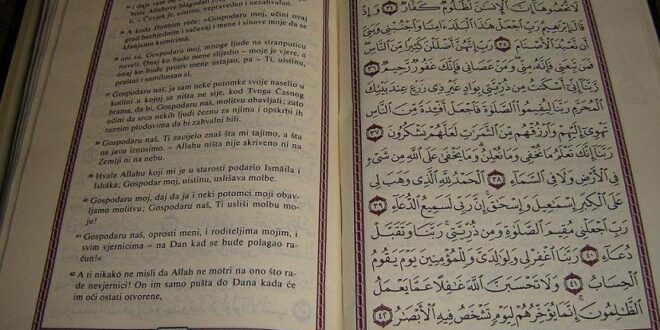 i daje vam
biste Allahove blagodati
– Čovjek je, uistinu, nepravedan i nezahvalan.
35 A kada Ibrahim reče: »Gospodaru moj, učini ovaj
grad bezbjednim i sačuvaj i mene i sinove moje da se
klanjamo kumirima,
36 oni su, Gospodaru moj, mnoge ljude na stranputicu
naveli. Onaj ko bude mene slijedio – moje je vjere, a
onaj ko bude protiv mene ustajao, pa – Ti, uistinu,
praštaš i samilostan si.
37 Gospodaru naš, ja sam neke potomke svoje naselio u
kotlini u kojoj se ništa ne sije, kod Tvoga Časnog
hrama, da bi, Gospodaru naš, molitvu obavljali; zato
učini da srca nekih ljudi čeznu za njima i opskrbi ih
raznim plodovima da bi zahvalni bili.
38 Gospodaru naš, Ti zacijelo znaš šta mi tajimo, a šta
na javu iznosimo. – Allahu ništa nije skriveno ni na
Zemlji ni na nebu.
39 Hvala Allahu koji mi je u starosti podario Ismāila i
Ishāka; Gospodar moj, uistinu, uslišava molbe.
40 Gospodaru moj, daj da ja i neki potomci moji obav-
ljamo molitvu; Gospodaru naš, Ti usliši molbu mo-
ju!
41 Gospodaru naš, oprosti meni, i roditeljima mojim, i
svim vjernicima – na Dan kad se bude polagao ra-
čun!«
42 A ti nikako ne misli da Allah ne motri na ono što ra-
de nevjernici! On im samo pušta do Dana kada će
im oči ostati otvorene,
لَا تُحْصُوهَآ إِنَّ ٱلْإِنسَٰنَ لَظَلُومٌ كَفَّارٌ ٣٤ وَإِذْ
قَالَ إِبْرَٰهِيمُ رَبِّ ٱجْعَلْ هَٰذَا ٱلْبَلَدَ ءَامِنًا وَٱجْنُبْنِي وَبَنِيَّ
أَن نَّعْبُدَ ٱلْأَصْنَامَ ٣٥ رَبِّ إِنَّهُنَّ أَضْلَلْنَ كَثِيرًا مِّنَ ٱلنَّاسِ
فَمَن تَبِعَنِي فَإِنَّهُۥ مِنِّي وَمَنْ عَصَانِي فَإِنَّكَ غَفُورٌ رَّحِيمٌ ٣٦
رَّبَّنَآ إِنِّيٓ أَسْكَنتُ مِن ذُرِّيَّتِي بِوَادٍ غَيْرِ ذِي زَرْعٍ عِندَ بَيْتِكَ
ٱلْمُحَرَّمِ رَبَّنَا لِيُقِيمُوا۟ ٱلصَّلَوٰةَ فَٱجْعَلْ أَفْـِٔدَةً مِّنَ ٱلنَّاسِ
تَهْوِيٓ إِلَيْهِمْ وَٱرْزُقْهُم مِّنَ ٱلثَّمَرَٰتِ لَعَلَّهُمْ يَشْكُرُونَ ٣٧
رَبَّنَآ إِنَّكَ تَعْلَمُ مَا نُخْفِي وَمَا نُعْلِنُ وَمَا يَخْفَىٰ عَلَى ٱللَّهِ مِن شَيْءٍ
فِي ٱلْأَرْضِ وَلَا فِي ٱلسَّمَآءِ ٣٨ ٱلْحَمْدُ لِلَّهِ ٱلَّذِي وَهَبَ لِي
عَلَى ٱلْكِبَرِ إِسْمَٰعِيلَ وَإِسْحَٰقَ إِنَّ رَبِّي لَسَمِيعُ ٱلدُّعَآءِ ٣٩
رَبِّ ٱجْعَلْنِي مُقِيمَ ٱلصَّلَوٰةِ وَمِن ذُرِّيَّتِي رَبَّنَا وَتَقَبَّلْ
دُعَآءِ ٤٠ رَبَّنَا ٱغْفِرْ لِي وَلِوَٰلِدَيَّ وَلِلْمُؤْمِنِينَ يَوْمَ يَقُومُ
ٱلْحِسَابُ ٤١ وَلَا تَحْسَبَنَّ ٱللَّهَ غَٰفِلًا عَمَّا يَعْمَلُ
ٱلظَّٰلِمُونَ إِنَّمَا يُؤَخِّرُهُمْ لِيَوْمٍ تَشْخَصُ فِيهِ ٱلْأَبْصَٰرُ ٤٢